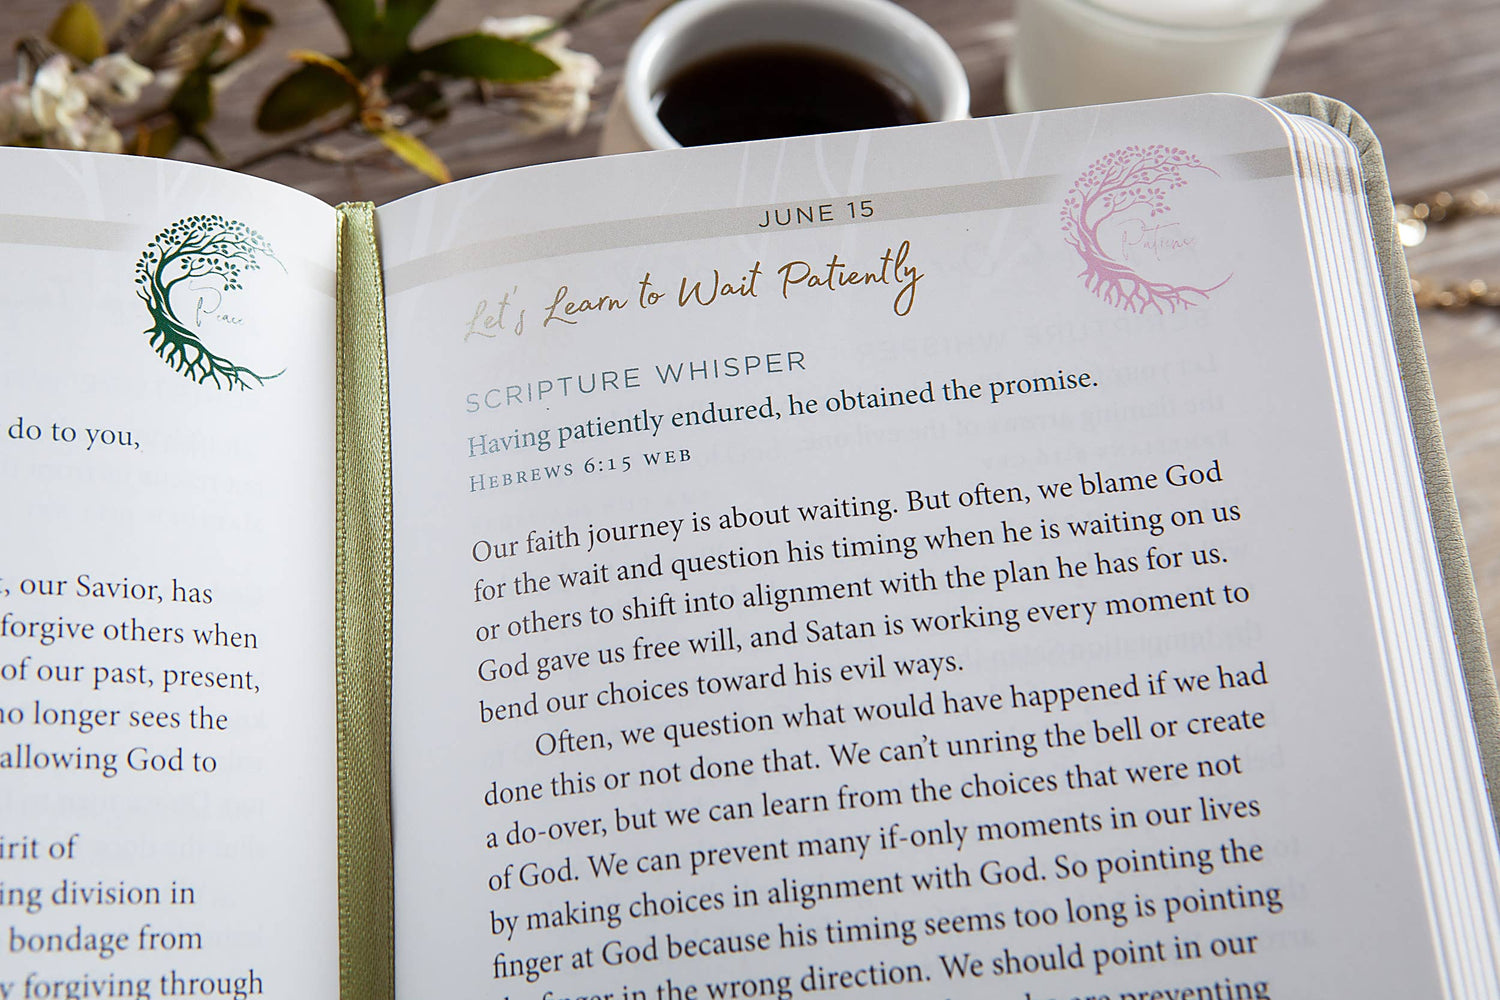 Peace
do to you,
, our Savior, has
forgive others when
of our past, present,
no longer sees the
allowing God to
irit of
ing division in
bondage from
y forgiving through
JUNE 15
Patience
Let's Learn to Wait Patiently
SCRIPTURE WHISPER
Having patiently endured, he obtained the promise.
HEBREWS 6:15 WEB
Our faith journey is about waiting. But often, we blame God
for the wait and question his timing when he is waiting on us
or others to shift into alignment with the plan he has for us.
God gave us free will, and Satan is working every moment to
bend our choices toward his evil ways.
Often, we question what would have happened if we had
done this or not done that. We can't unring the bell or create
a do-over, but we can learn from the choices that were not
of God. We can prevent many if-only moments in our lives
by making choices in alignment with God. So pointing the
finger at God because his timing seems too long is pointing
finger in the wrong direction. We should point in our
are preventing